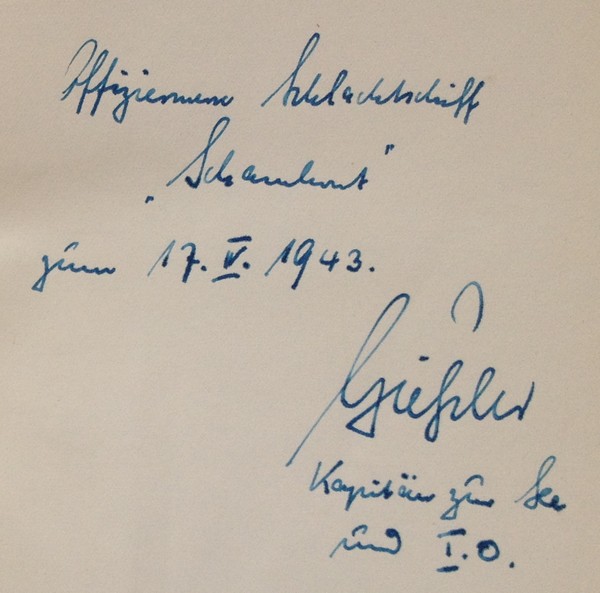 Offiziermesse Schlachtschiff
„Scharnhorst"
zum 17. V. 1943.
Gießler
Kapitän zur See
und I.O.